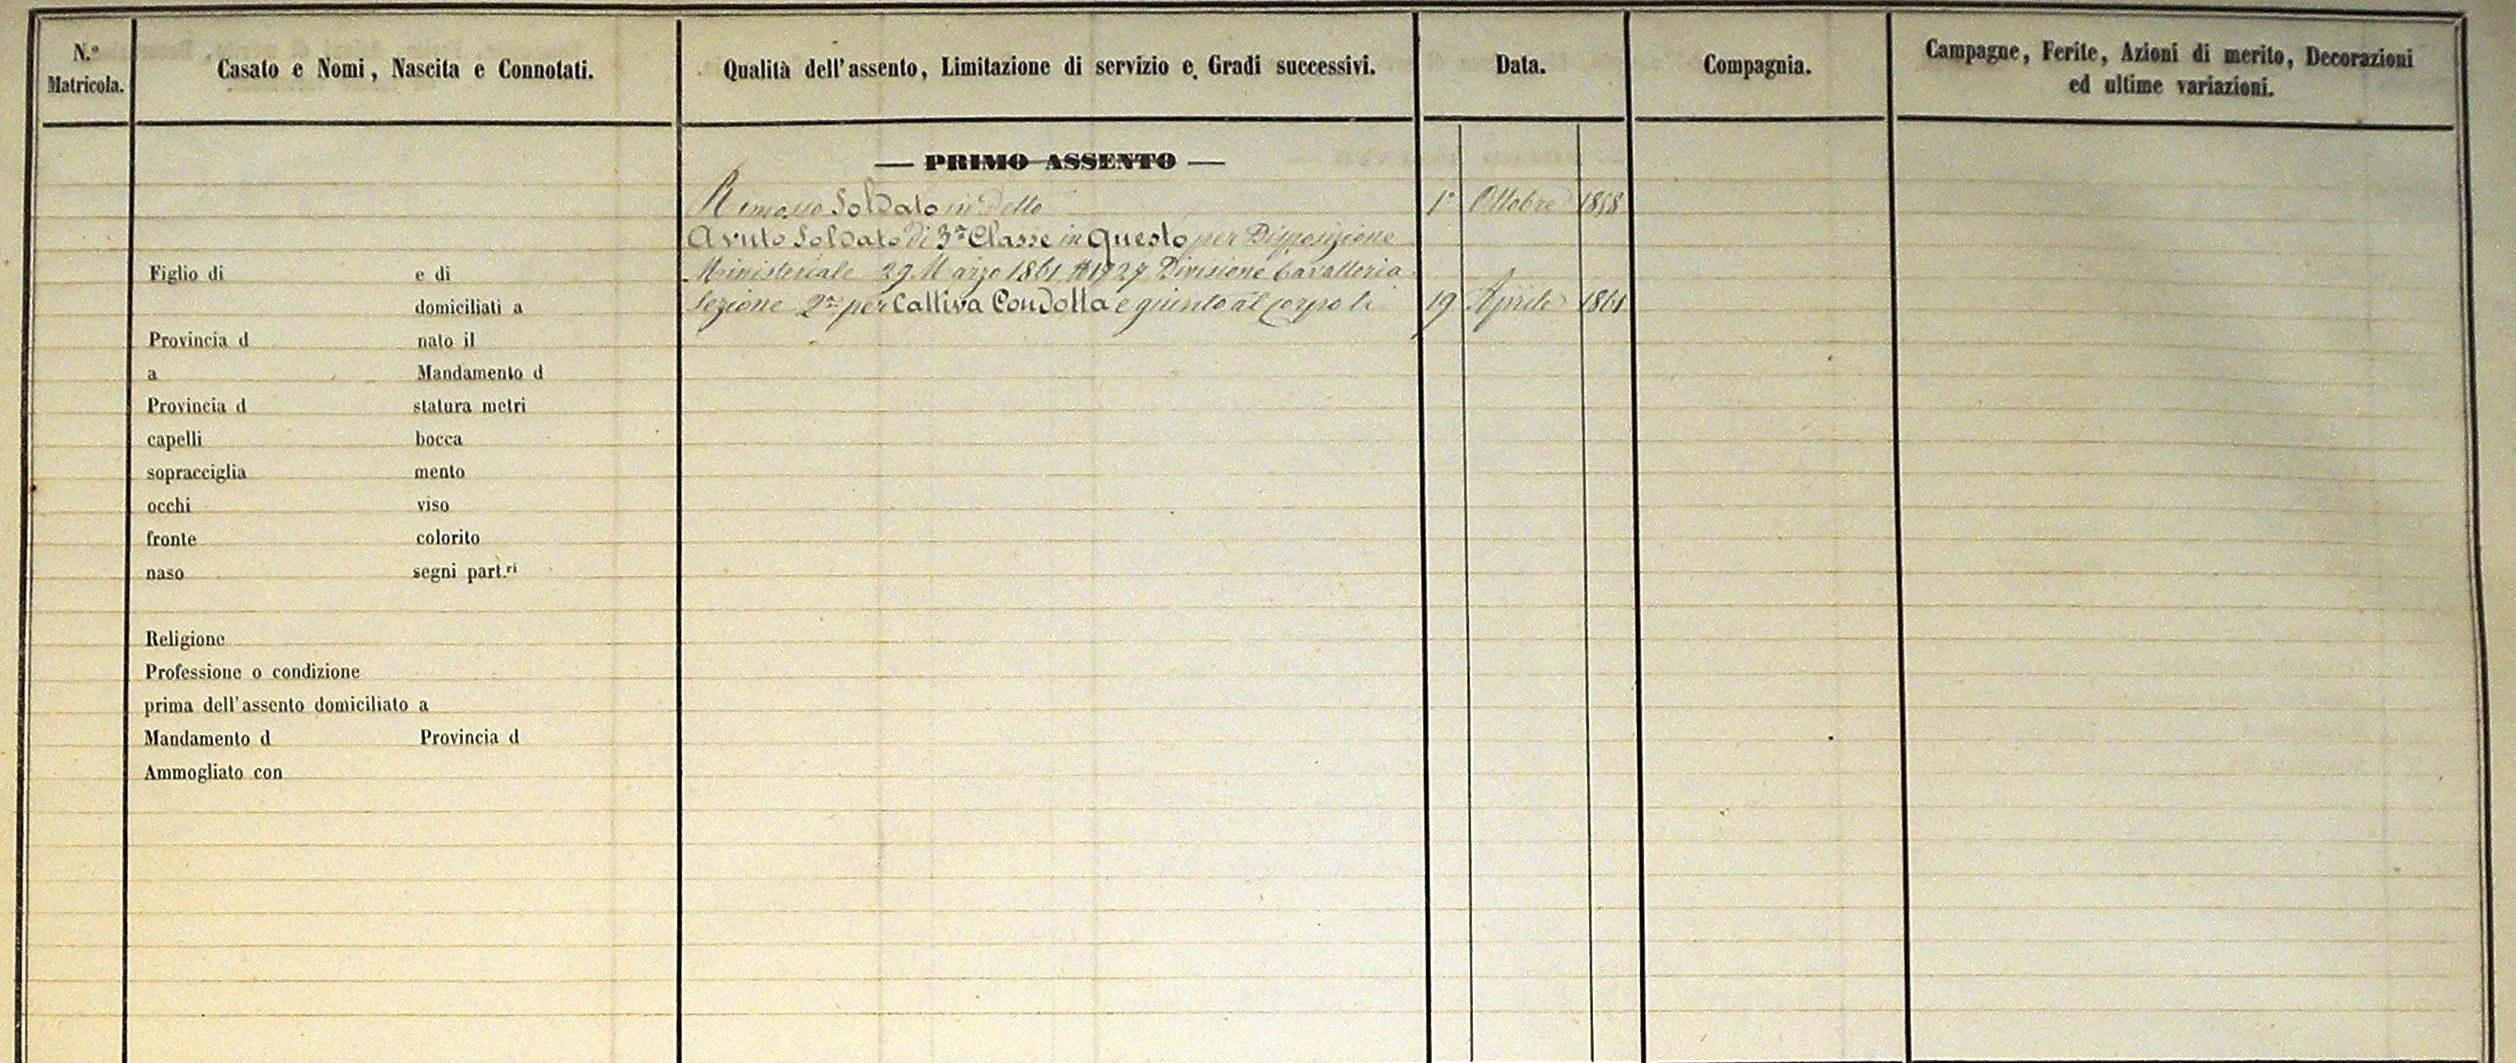 N.° Matricola.
Casato e Nomi, Nascita e Connotati.
Qualità dell'assento, Limitazione di servizio e Gradi successivi.
Data.
Compagnia.
Campagne, Ferite, Azioni di merito, Decorazioni
ed ultime variazioni.
— PRIMO ASSENTO —
Rimosso Soldato in Detto 1° Ottobre 1858
Avuto Soldato di 3ª Classe in Questo per Disposizione
Ministeriale 29 Marzo 1861 Divisione Cavalleria
Sezione 2ª per Cattiva Condotta e giunto al corpo li 19 Aprile 1861
Figlio di e di
domiciliati a
Provincia d nato il
a Mandamento d
Provincia d statura metri
capelli bocca
sopracciglia mento
occhi viso
fronte colorito
naso segni part.ri
Religione
Professione o condizione
prima dell'assento domiciliato a
Mandamento d Provincia d
Ammogliato con